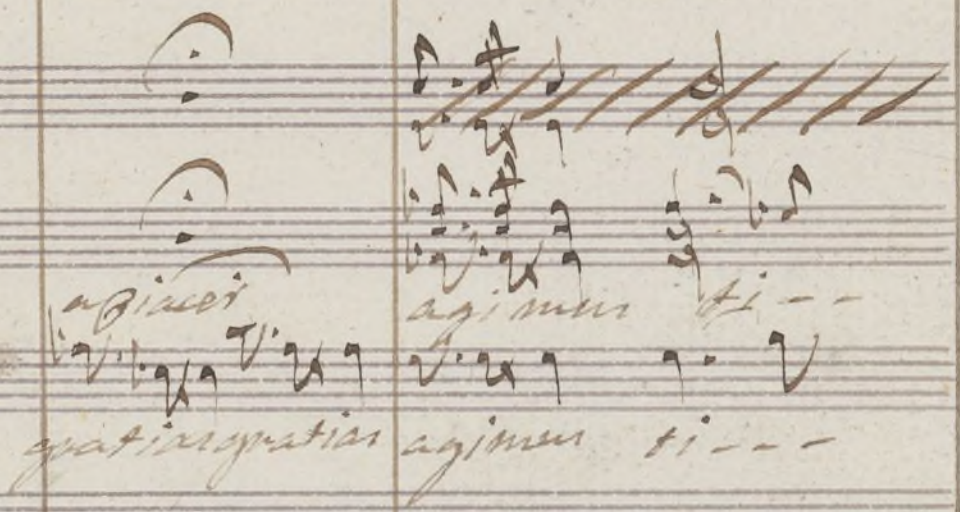 agimus ti - -
gratias gratias agimus ti - - -